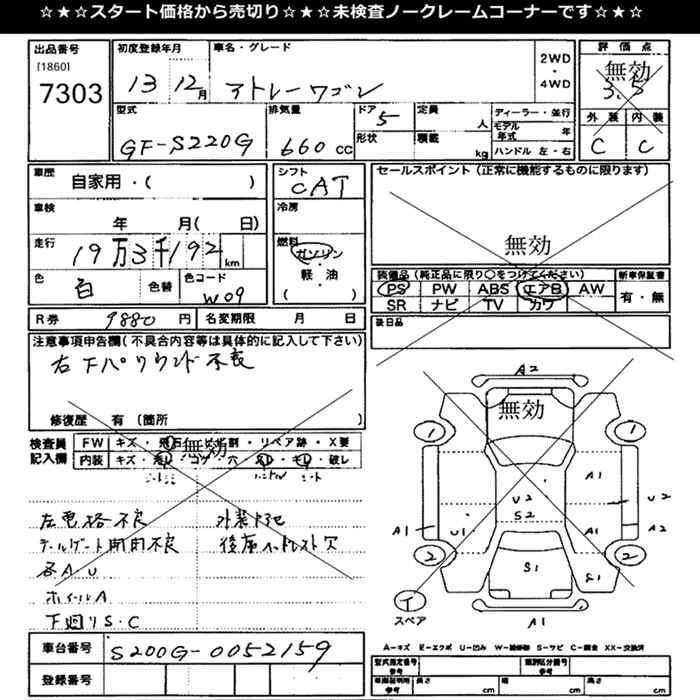 ☆★☆★スタート価格から売切り☆★☆★未検査ノークレームコーナーです☆★☆★
出品番号
[1860]
7303
初度登録年月
13 12月
車名・グレード
アトレーワゴン
2WD
・
4WD
評価点
無効
3.5
外装 内装
C C
型式
GF-S220G
排気量
660 CC
ドア
5
形状
定員
人
積載
kg
ディーラー・並行
モデル年式 年
ハンドル 左・右
車歴
自家用・( )
車検
年 月( 日)
走行
19万3千192 km
色
白
色替
色コード
W09
シフト
CAT
冷房
燃料
ガソリン
・
軽・油
( )
セールスポイント (正常に機能するものに限ります)
無効
装備品 (純正品に限り○をつけてください)
PS PW ABS エアB AW
SR ナビ TV カワ
新車保証書
有・無
後日品
R券 9880 円
名変期限 月 日
注意事項申告欄(不具合内容等は具体的に記入して下さい)
右FパワWind不良
修復歴 有 〔箇所 〕
検査員記入欄
FW キズ・飛石・ヒビ割・リペア跡・X要
内装 キズ・・コゲ・穴・・・破レ
無効
ハンドル シート
左電格不良
テールゲート開閉不良
各A U
ホイールA
下廻りS・C
後席ヘッドレスト欠
車台番号
S200G-0052159
登録番号
無効
A2
1
1
A1
U2
S2
U2
A1
U1
A1
A2
2
2
S1
S1
A1
イ
スペア
A-キズ E-エクボ U-凹み W-補修跡 S-サビ C-腐食 XX-交換済
型式指定番号
参考
類別区分番号
参考
車庫証明用
参考
長さ cm
幅 cm
高さ cm